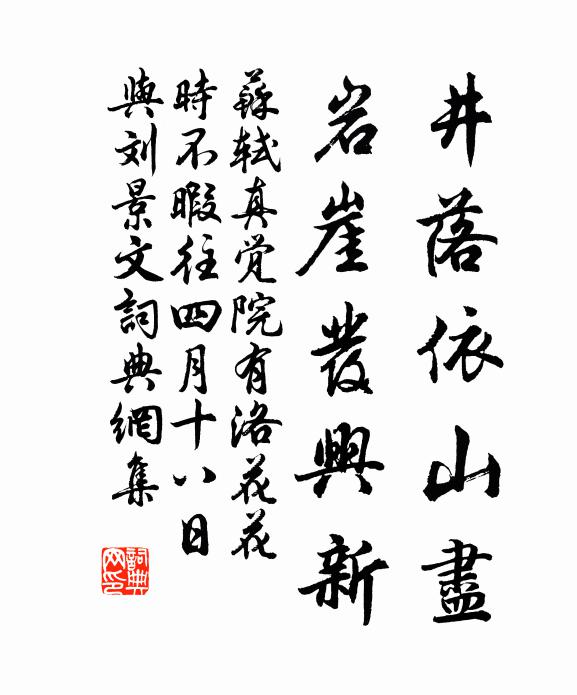 井落依山盡
岩崖發興新
蘇軾真覚院有洛花花
時不暇往四月十八日
與刘景文詞典網集
詞典网印